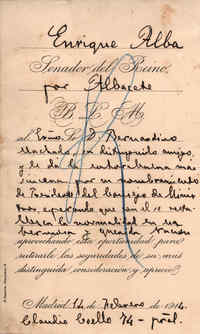 Enrique Alba
Senador del Reino,
por Albacete
B. L. M.
al Excmo. Sr. D. Bernardino
Machado, su distinguido amigo,
y le da la enhorabuena más
sincera por su nombramiento
de Presidente del Consejo de Minis
tros, esperando que en él se resta
blezca la normalidad en su
hermosa y querida Nación
aprovechando esta oportunidad para
reiterarle las seguridades de su más
distinguida consideración y aprecio.
Madrid 14 de Febrero de 1914.
Claudio Coello 74 - pral.